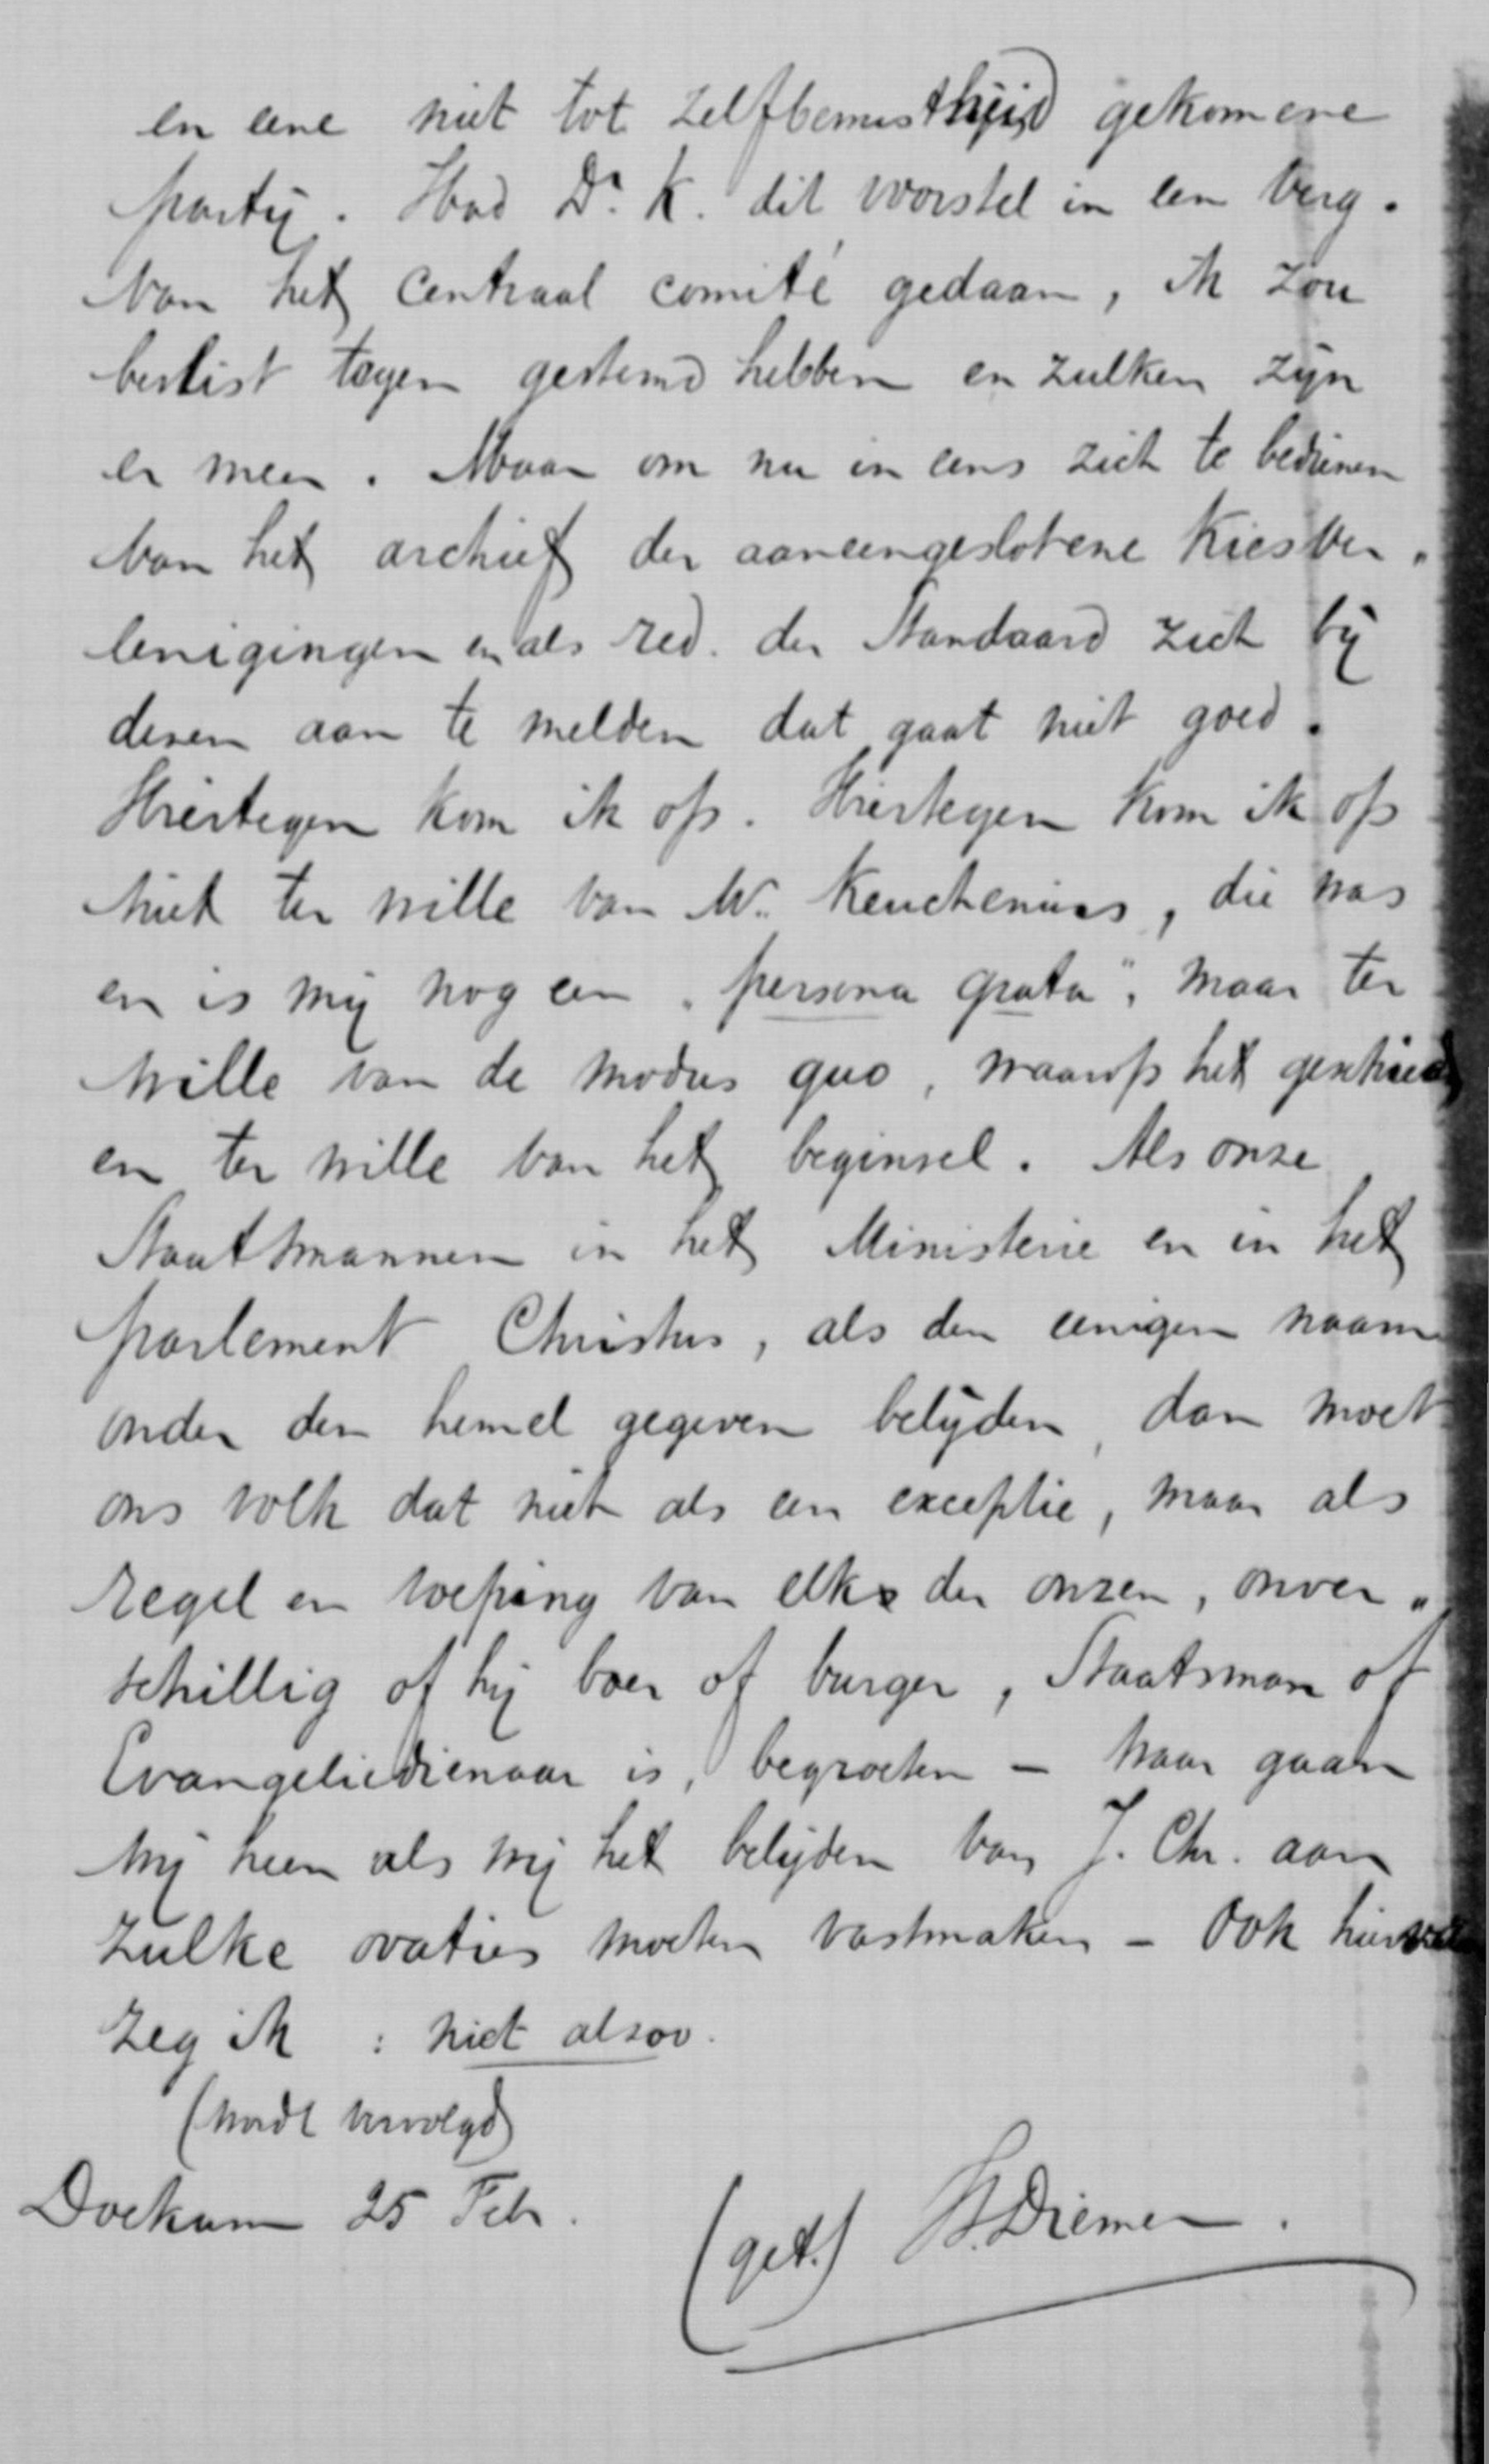 en eene niet tot zelfbewustheid gekomene
partij. Had Dr. K. dit voorstel in een verg.
van het Centraal comité gedaan, ik zou
beslist tegen gestemd hebben en zulken zijn
er meer. Maar om nu in eens zich te bedienen
van het archief der aaneengeslotene Kiesver„
eenigingen en als red. der Standaard zich bij
dezen aan te melden dat gaat niet goed.
Hiertegen kom ik op. Hiertegen kom ik op
niet ter wille van Mr. Keuchenius, die was
en is mij nog een „persona grata", maar ter
wille van de modus quo, waarop het geschied
en ter wille van het beginsel. Als onze
Staatmannen in het Ministerie en in het
parlement Christus, als den eenigen naam
onder den hemel gegeven belijden, dan moet
ons volk dat niet als een exceptie, maar als
regel en roeping van elk der onzen, onver„
schillig of hij boer of burger, Staatsman of
Evangeliedienaar is, begroeten – waar gaan
wij heen als wij het belijden van J. Chr. aan
zulke ovaties moeten vastmaken – Ook
zeg ik : niet alzoo.
(wordt vervolgd)
Dockum 25 Feb.
(get.) H. Diemer.